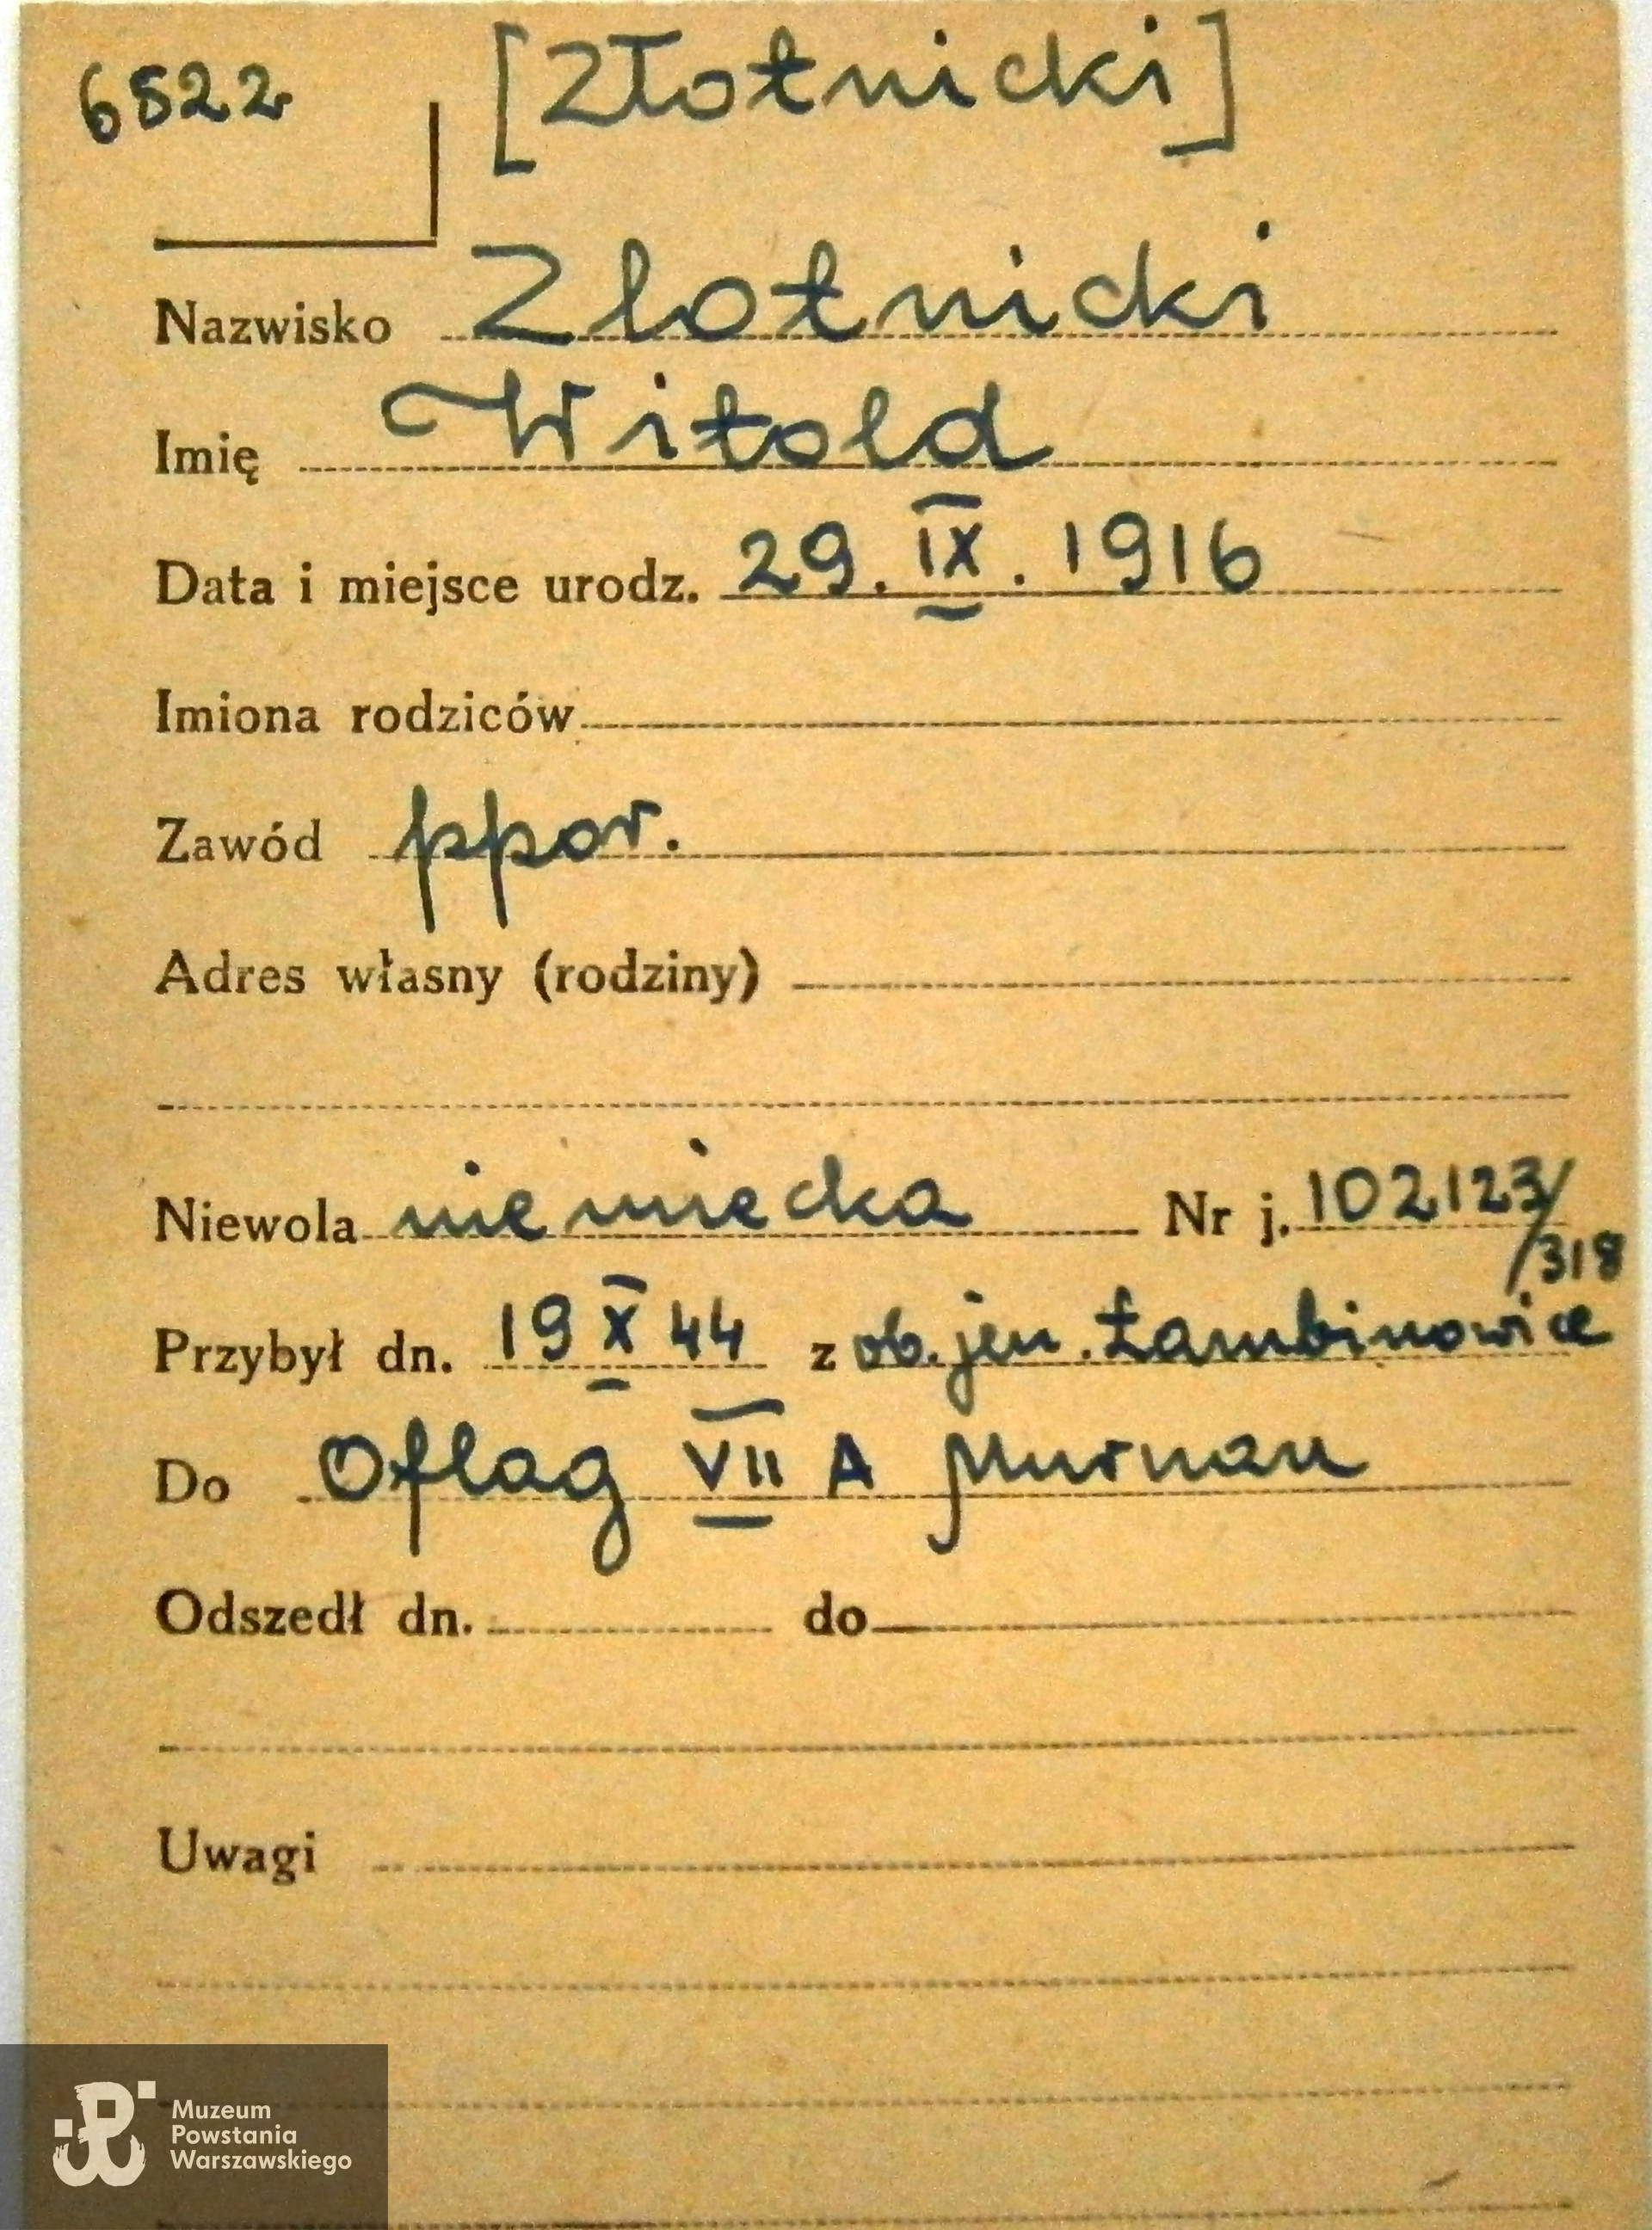 6522
[Złotnicki]
Nazwisko Zlotnicki
Imię Witold
Data i miejsce urodz. 29. IX. 1916
Imiona rodziców
Zawód ppor.
Adres własny (rodziny)
Niewola niemiecka Nr j. 102123/
/318
Przybył dn. 19 X 44 z ob. jen. Łambinowice
Do Oflag VII A Murnau
Odszedł dn. do
Uwagi
Muzeum
Powstania
Warszawskiego